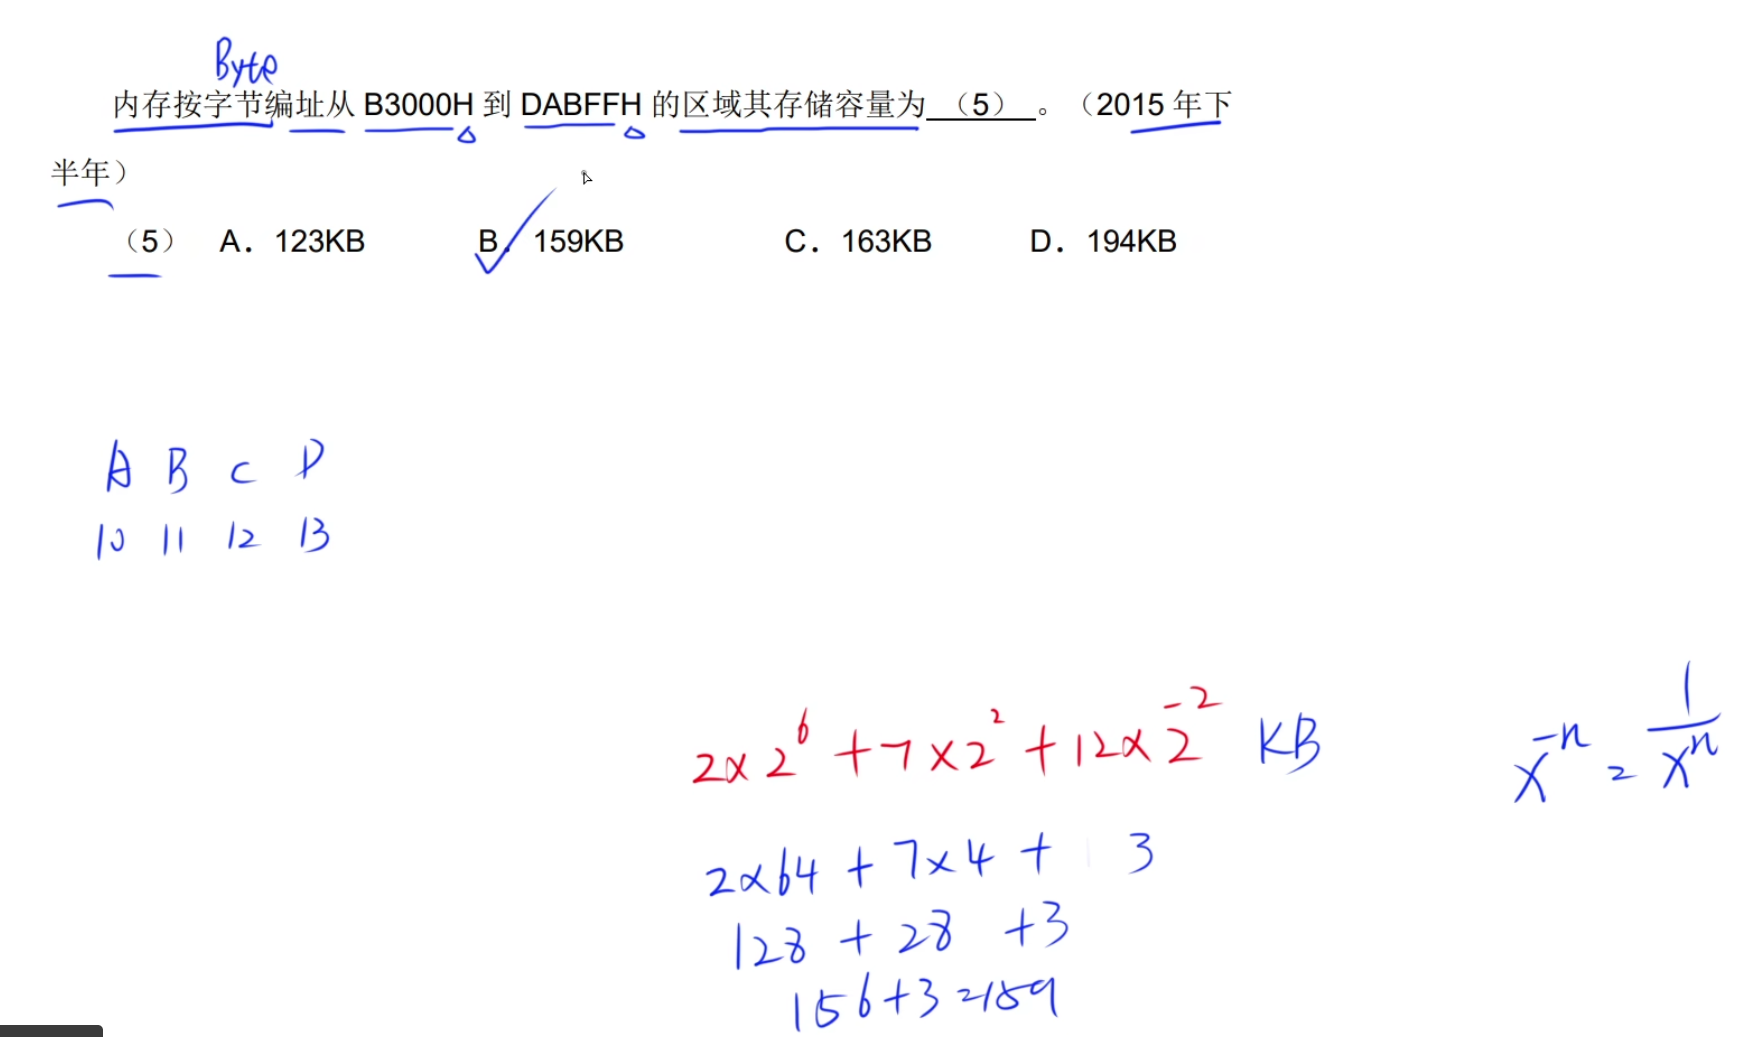 Byte
内存按字节编址从 B3000H 到 DABFFH 的区域其存储容量为 （5） 。（2015 年下
半年）
（5） A. 123KB B. 159KB C. 163KB D. 194KB
A B C D
10 11 12 13
2×2⁶+7×2²+12×2⁻² KB
x⁻ⁿ = 1/xⁿ
2×64+7×4+ 3
128+28 +3
156+3=159